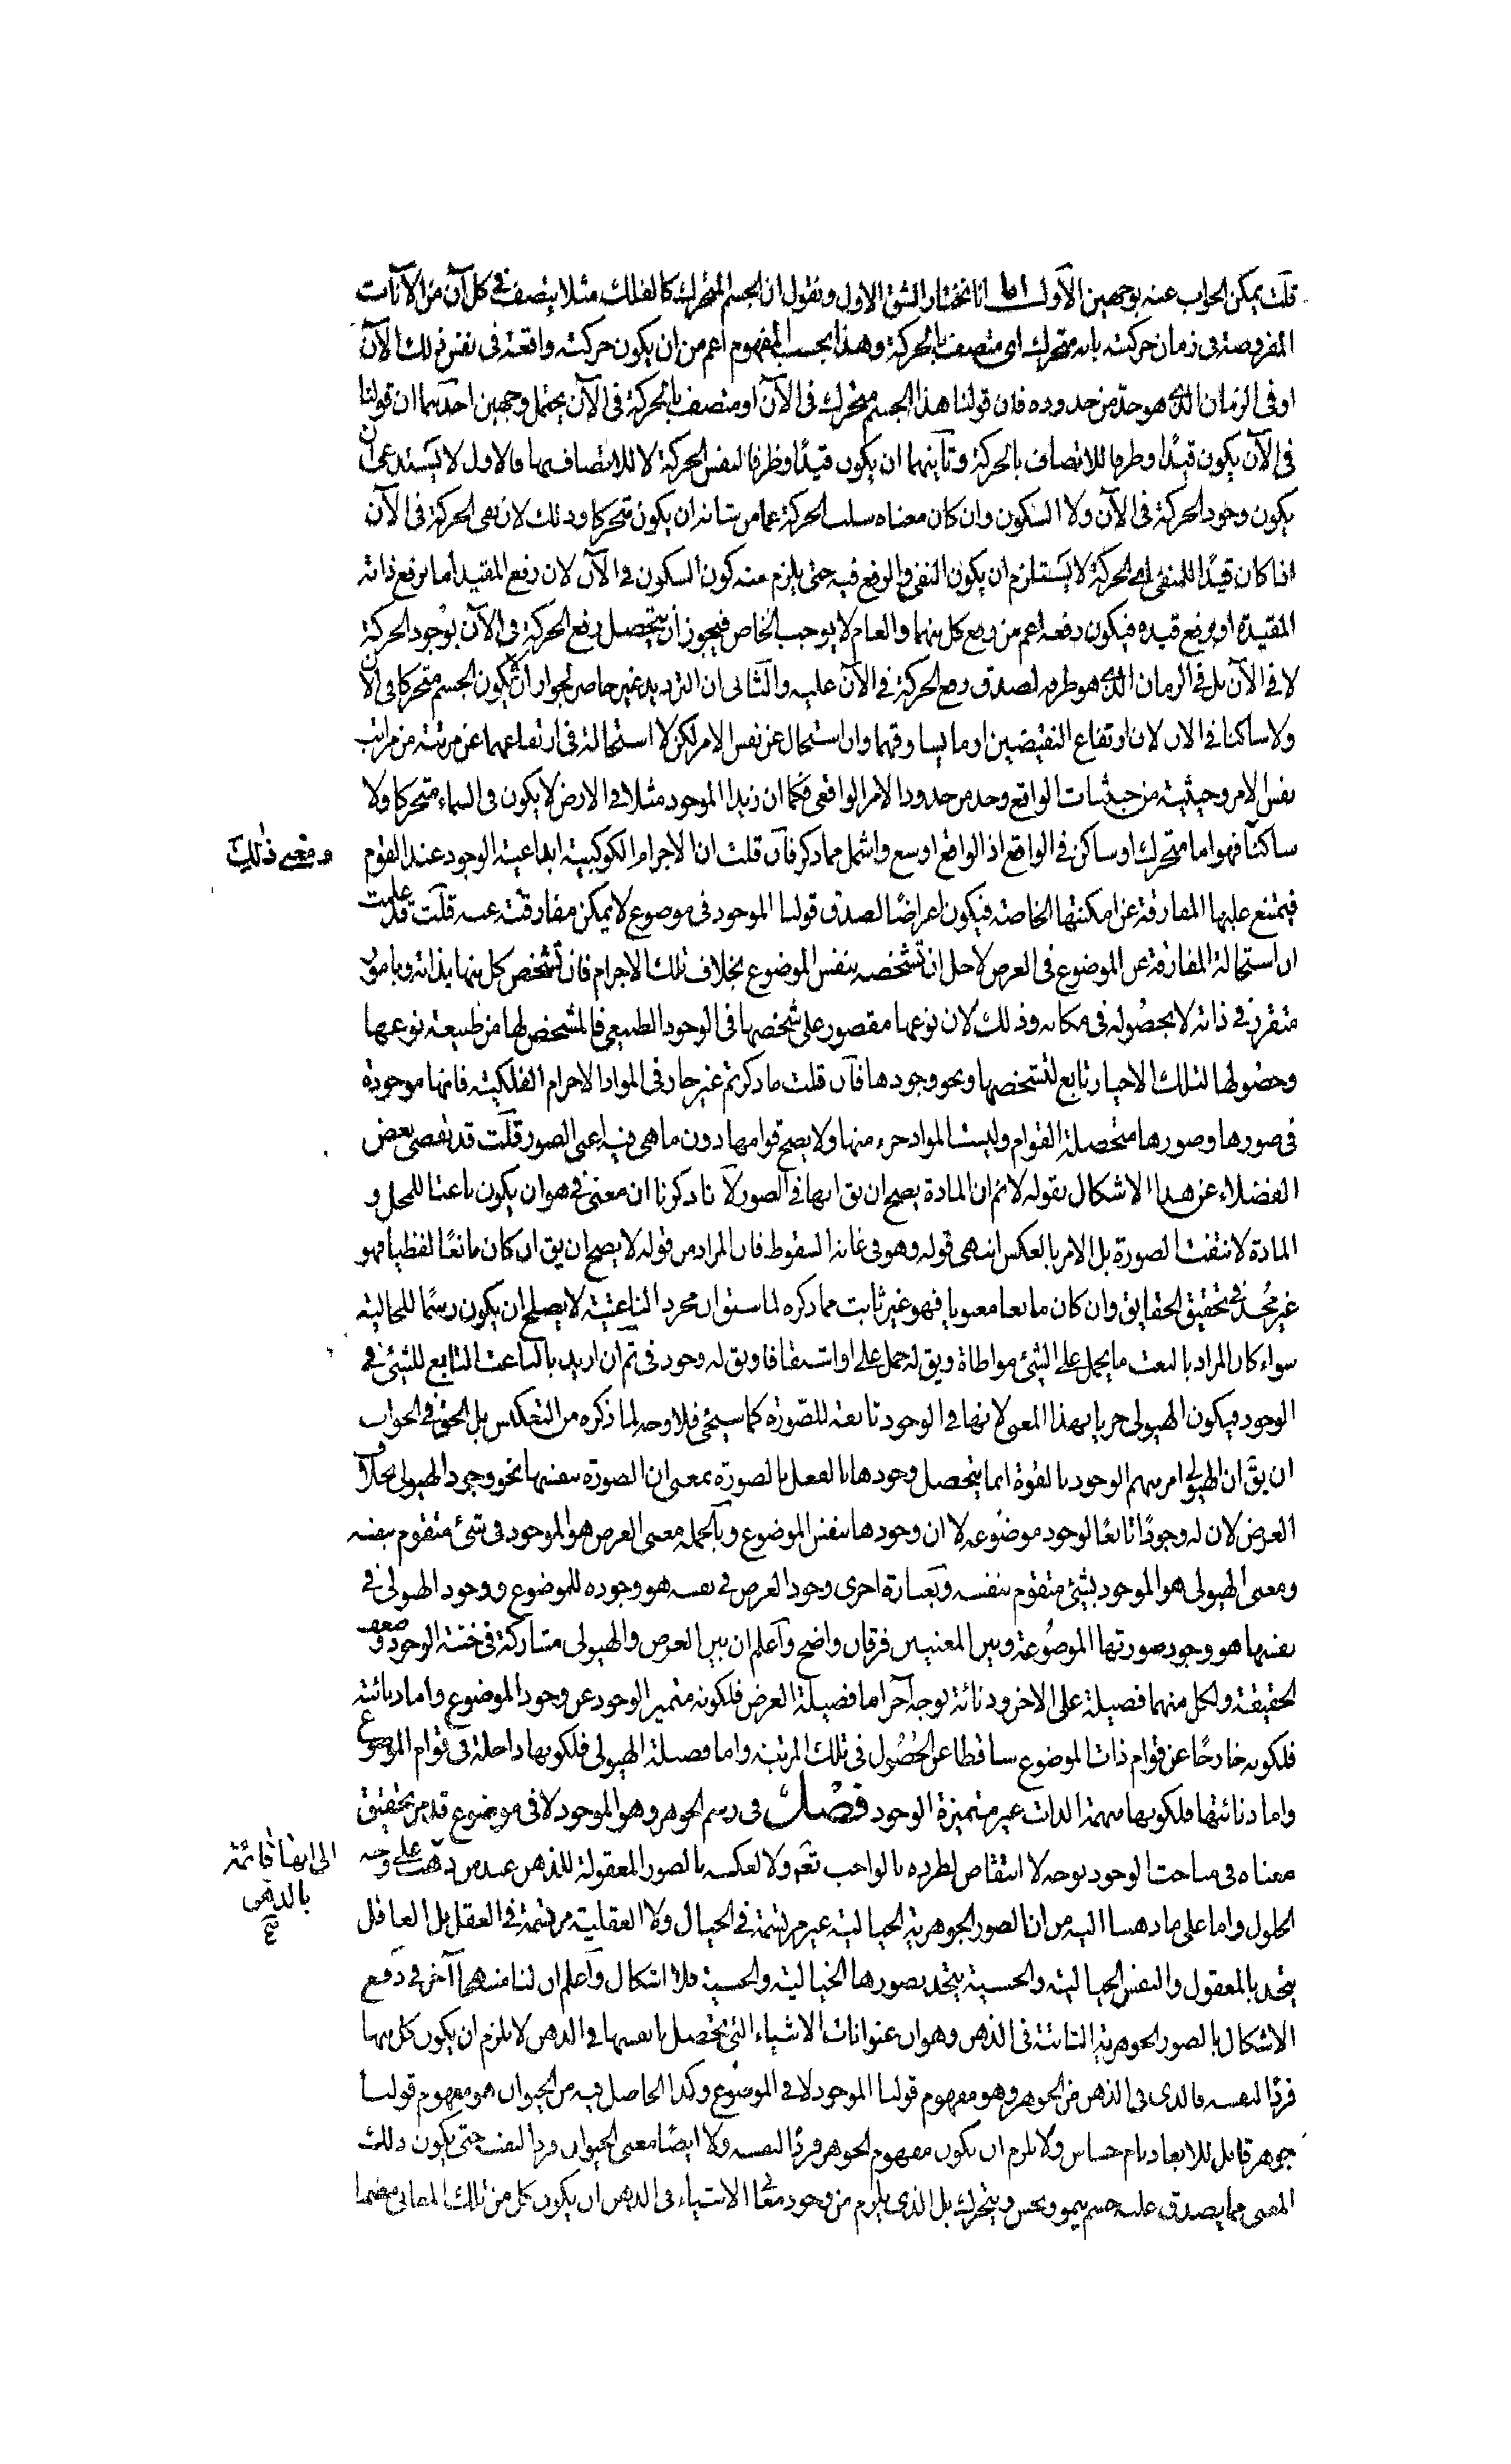 قلت يمكن الجواب عنه بوجهين الأول انا نختار الشق الاول ونقول ان الجسم المتحرك كالفلك مثلا يتصف في كل آن من الآنات
المفروضة فى زمان حركته بانه متحرك اى متصف بالحركة وهذا بحسب المفهوم اعم من ان يكون حركته واقعة فى نفس ذلك الآن
او فى الزمان الذى هو حدّ من حدوده فان قولنا هذا الجسم متحرك فى الآن او متصف بالحركة فى الآن يحتمل وجهين احدهما ان قولنا
فى الآن يكون قيدًا وظرفا للاتصاف بالحركة وثانيهما ان يكون قيدًا وظرفا لنفس الحركة لا للاتصاف بها فالاول لا يستدعى ان
يكون وجود الحركة فى الآن ولا السكون وان كان معناه سلب الحركة عما من شانه ان يكون متحركا وذلك لان نفى الحركة فى الآن
اذا كان قيدًا للمنفى اى الحركة لا يستلزم ان يكون النفى والرفع فيه حتى يلزم منه كون السكون فى الآن لان رفع المقيد اما برفع ذاته
المقيدة او برفع قيده فيكون رفعه اعم من رفع كل منهما والعام لا يوجب الخاص فيجوز ان يتحصل رفع الحركة فى الآن بوجود الحركة
لا فى الآن بل فى الزمان الذى هو طرفه لصدق رفع الحركة فى الآن عليه والثانى ان الترديد غير حاصر لجواز ان لا يكون الجسم متحركا فى الآن
ولا ساكنا فى الآن لان ارتفاع النقيضين او ما يساوقهما وان استحال عن نفس الامر لكن لا استحالة فى ارتفاعهما عن مرتبة من مراتب
نفس الامر وحيثية من حيثيات الواقع وحد من حدود الامر الواقعى فكما ان زيدا الموجود مثلا فى الارض لا يكون فى السماء متحركا ولا
ساكنًا فهو اما متحرك او ساكن فى الواقع اذ الواقع اوسع واشمل مما ذكر فان قلت ان الاجرام الكوكبية ابداعية الوجود عند القوم
ومع ذلك
فيمتنع عليها المفارقة عن امكنتها الخاصة فيكون اعراضًا لصدق قولنا الموجود فى موضوع لا يمكن مفارقته عنه قلت قد علمت
ان استحالة المفارقة عن الموضوع فى العرض لاجل ان تشخصه بنفس الموضوع بخلاف تلك الاجرام فان تشخص كل منها بذاته وبامور
متقرر فى ذاته لا بحصوله فى مكانه وذلك لان نوعها مقصور على شخصها فى الوجود الطبيعى فالمشخص لها من طبيعة نوعها
وحصولها لتلك الاحياز تابع لتشخصها ونحو وجودها فان قلت ما ذكرتم غير جار فى المواد الاجرام الفلكية فانها موجودة
فى صورها وصورها متحصلة القوام وليست المواد جزء منها ولا يصح قوامها دون ما هى فيه اعنى الصور قلت قد تفصى بعض
الفضلاء عن هذا الاشكال بقوله لانم ان المادة يصح ان يق انها فى الصور لانا ذكرنا ان معنى فى هو ان يكون ناعتا للمحل و
المادة لا تنعت الصورة بل الامر بالعكس انتهى قوله وهو فى غاية السقوط فان المراد من قوله لا يصح ان يق ان كان مانعًا لفظيا فهو
غير مُجد فى تحقيق الحقايق وان كان مانعا معنويا فهو غير ثابت مما ذكره لما سبق ان مجرد الناعتية لا يصلح ان يكون رسمًا للحالية
سواء كان المراد بالنعت ما يحمل على الشىء مواطاة ويق له حمل على او اشتقاقا ويق له وجود فى ثم ان اريد بالناعت التابع للشىء فى
الوجود فيكون الهيولى حريا بهذا المعنى لانها فى الوجود تابعة للصورة كما سيجئ فلا وجه لما ذكره من التعكيس بل الحق فى الجواب
ان يق ان الهيولى امر مبهم الوجود بالقوة انما يتحصل وجودها بالفعل بالصورة بمعنى ان الصورة بنفسها نحو وجود الهيولى بخلاف
العرض لان له وجودًا تابعًا لوجود موضوعه لا ان وجودها بنفس الموضوع وبالجملة معنى العرض هو الموجود فى شئ متقوم بنفسه
ومعنى الهيولى هو الموجود بشئ متقوم بنفسه وبعبارة اخرى وجود العرض فى نفسه هو وجوده للموضوع ووجود الهيولى فى
نفسها هو وجود صورتها الموضوعة وبين المعنيين فرقان واضح واعلم ان بين العرض والهيولى مشاركة فى خسة الوجود وضعف
الحقيقة ولكل منهما فضيلة على الاخر ودنائة لوجه آخر اما فضيلة العرض فلكونه متميز الوجود عن وجود الموضوع واما دنائته
فلكونه خارجًا عن قوام ذات الموضوع ساقطا عن الحُصُول فى تلك المرتبة واما فضيلة الهيولى فلكونها داخلة فى قوام الموضوع
واما دنائتها فلكونها مبهمة الذات غير متميزة الوجود فصل فى رسم الجوهر وهو الموجود لا فى موضوع قد مر تحقيق
معناه فى مباحث الوجود بوجه لا انتقاض لطرده بالواجب تعم ولا لعكسه بالصور المعقولة للذهن عند من ذهب على وجه
الى انها قائمة
بالذهن
الحلول واما على ما ذهبنا اليه من ان الصور الجوهرية الخيالية غير مرتسمة فى الخيال ولا العقلية مرتسمة فى العقل بل العاقل
يتحد بالمعقول والنفس الخيالية والحسية يتحد بصورها الخيالية والحسية فلا اشكال واعلم ان لنا منهجا آخر فى دفع
الاشكال بالصور الجوهرية الثابتة فى الذهن وهو ان عنوانات الاشياء التى تحصل بانفسها فى الذهن لا يلزم ان يكون كل منها
فردًا لنفسه فالذى فى الذهن من الجوهر هو مفهوم قولنا الموجود لا فى الموضوع وكذا الحاصل فيه من الحيوان هو مفهوم قولنا
جوهر قابل للابعاد نام حساس ولا يلزم ان يكون مفهوم الجوهر فردًا لنفسه ولا ايضًا معنى الحيوان فردا لنفسه حتى يكون ذلك
المعنى مما يصدق عليه جسم ينمو ويحس ويتحرك بل الذى يلزم من وجود معانى الاشياء فى الذهن ان يكون كل من تلك المعانى متضمنا